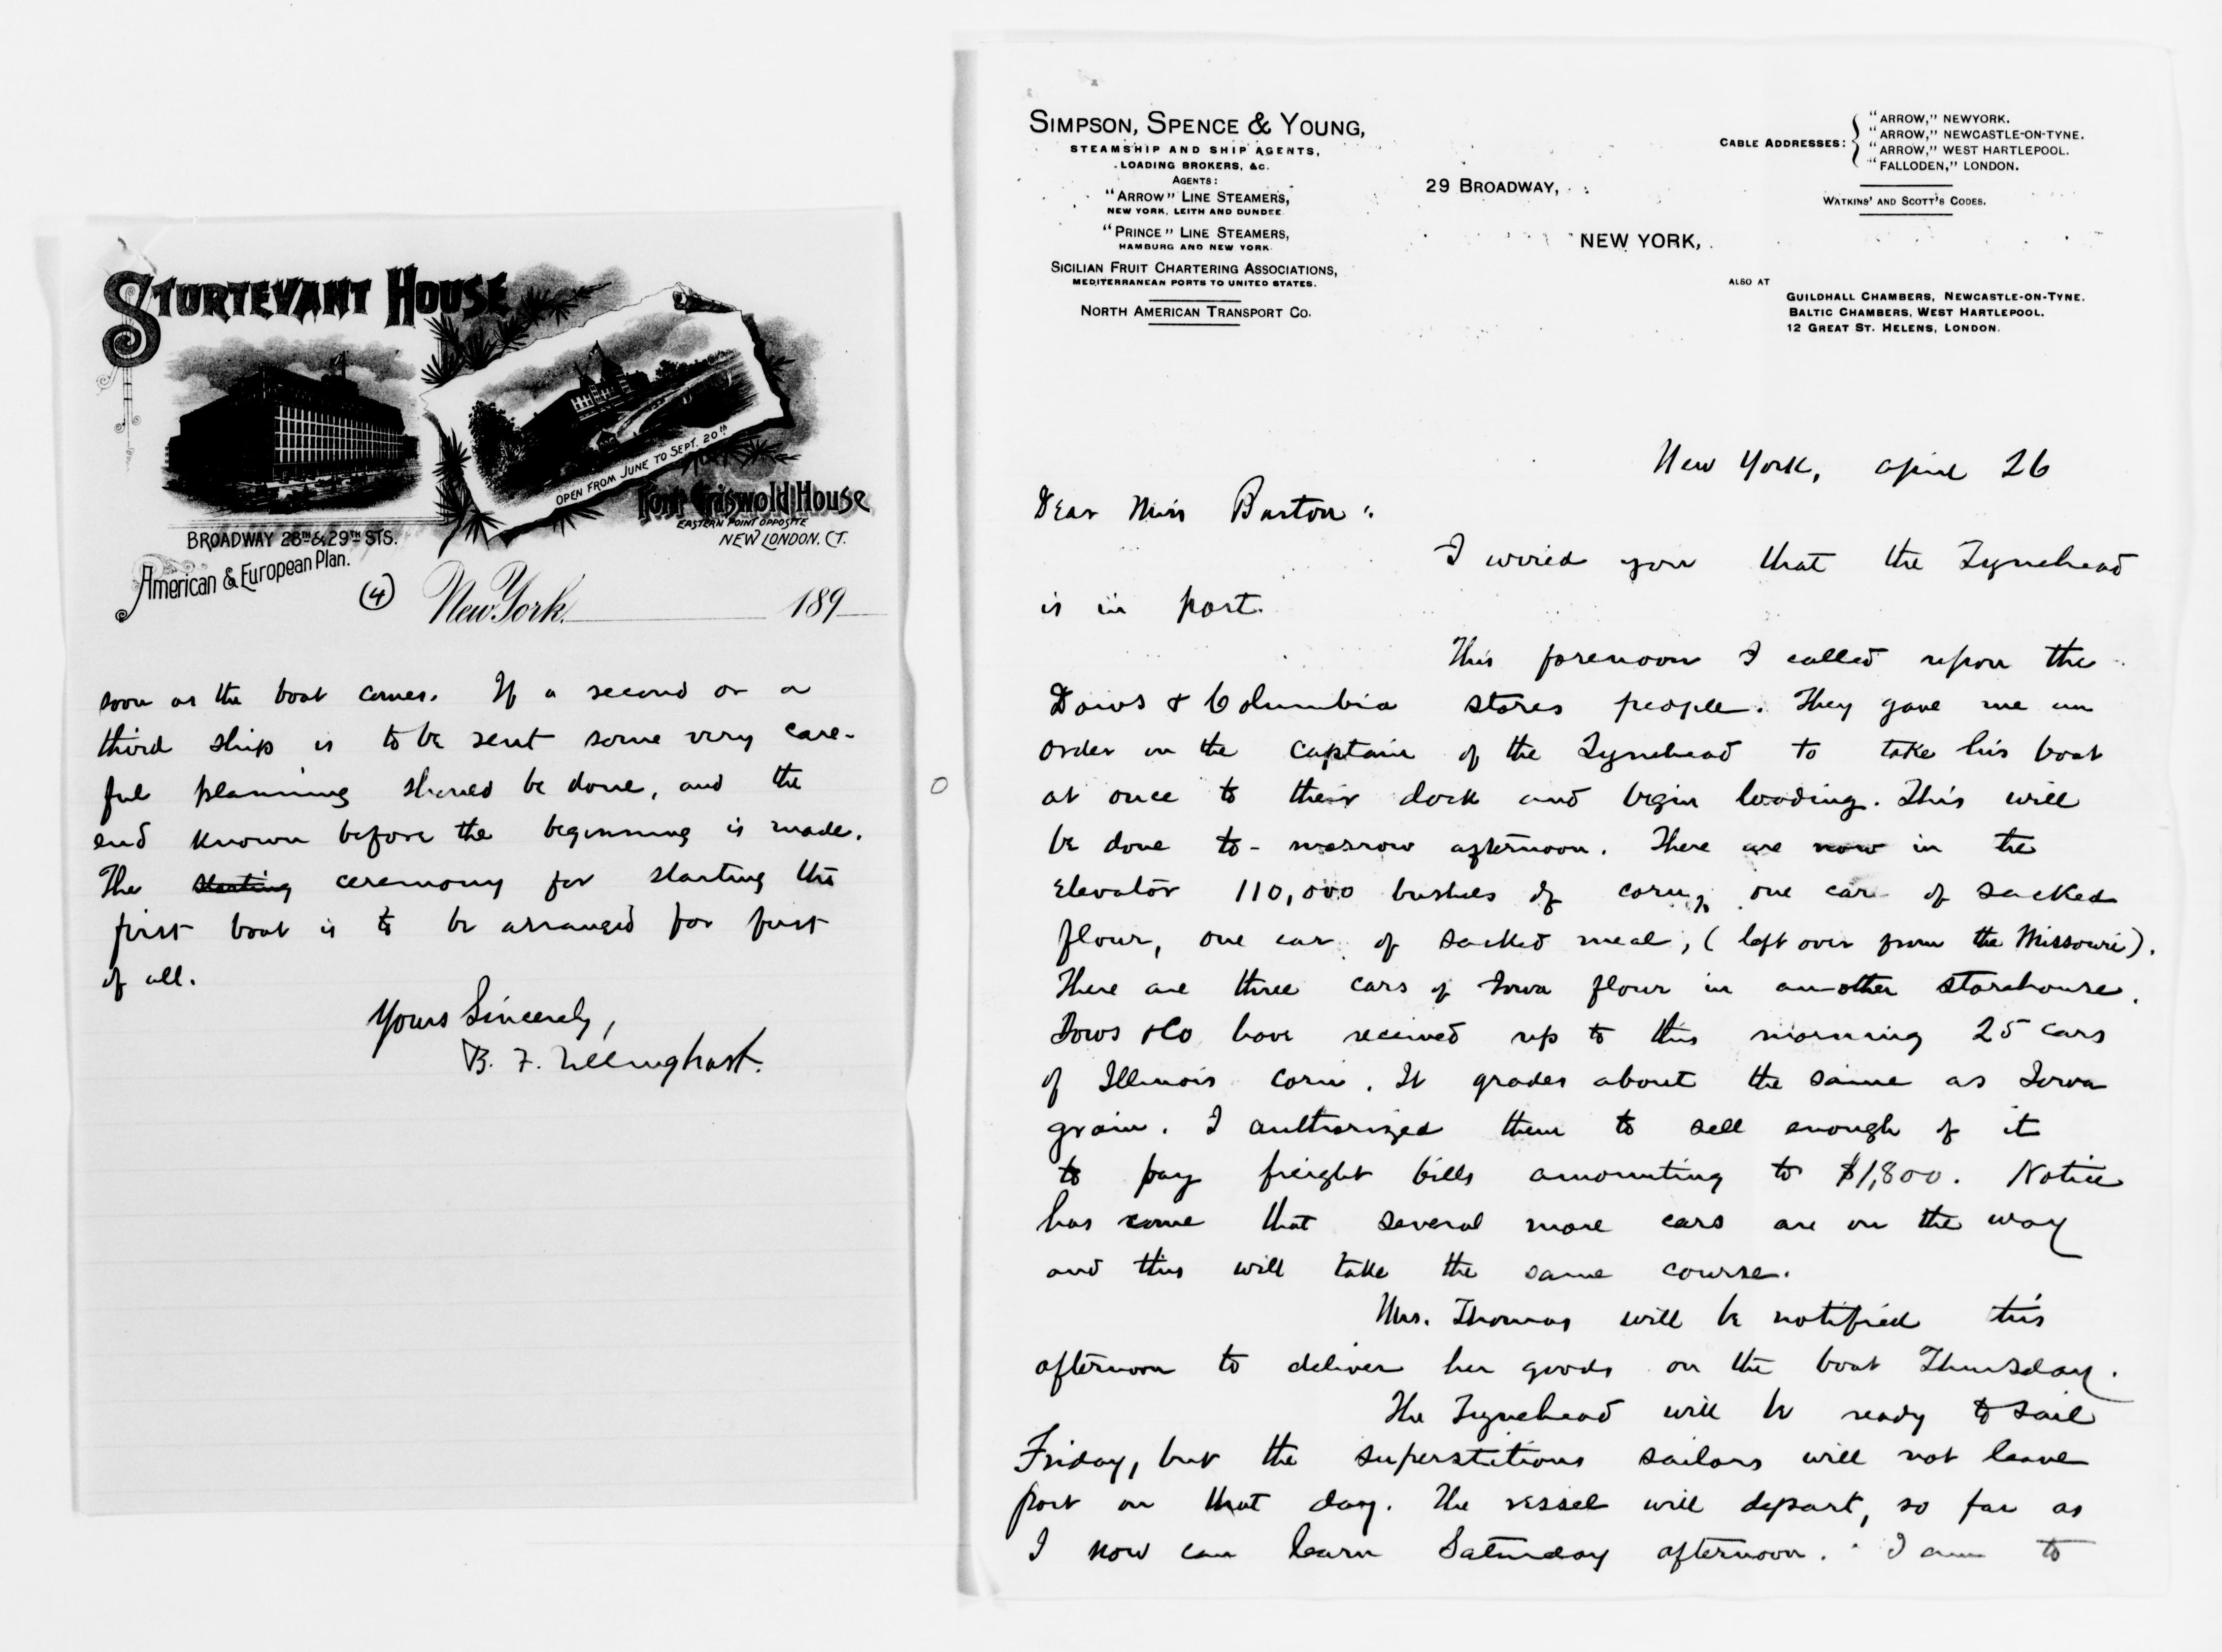 STURTEVANT HOUSE
OPEN FROM JUNE TO SEPT. 20th
Fort Griswold House
EASTERN POINT OPPOSITE
NEW LONDON, CT.
BROADWAY 28TH & 29TH STS.
American & European Plan.
(4) New York 189
soon as the boat comes. If a second or a
third ship is to be sent some very care-
ful planning should be done, and the
end known before the beginning is made.
The starting ceremony for starting the
first boat is to be arranged for first
of all.
Yours Sincerely,
B. F. Tillinghast.
SIMPSON, SPENCE & YOUNG,
STEAMSHIP AND SHIP AGENTS,
LOADING BROKERS, &c.
AGENTS:
"ARROW" LINE STEAMERS,
NEW YORK, LEITH AND DUNDEE
"PRINCE" LINE STEAMERS,
HAMBURG AND NEW YORK.
SICILIAN FRUIT CHARTERING ASSOCIATIONS,
MEDITERRANEAN PORTS TO UNITED STATES.
NORTH AMERICAN TRANSPORT CO.
29 BROADWAY,
NEW YORK,
CABLE ADDRESSES:
"ARROW," NEWYORK.
"ARROW," NEWCASTLE-ON-TYNE.
"ARROW," WEST HARTLEPOOL.
"FALLODEN," LONDON.
WATKINS' AND SCOTT'S CODES.
ALSO AT
GUILDHALL CHAMBERS, NEWCASTLE-ON-TYNE.
BALTIC CHAMBERS, WEST HARTLEPOOL.
12 GREAT ST. HELENS, LONDON.
New York, April 26
Dear Miss Barton:
I wired you that the Tynehead
is in port.
This forenoon I called upon the
Dows & Columbia stores people. They gave me an
order on the captain of the Tynehead to take his boat
at once to their dock and begin loading. This will
be done to-morrow afternoon. There are now in the
elevator 110,000 bushels of corn, one car of sacked
flour, one car of sacked meal, (left over from the Missouri).
There are three cars of Iowa flour in another storehouse.
Dows & Co have received up to this morning 25 cars
of Illinois corn. It grades about the same as Iowa
grain. I authorized them to sell enough of it
to pay freight bills amounting to $1,800. Notice
has come that several more cars are on the way
and this will take the same course.
Mrs. Thomas will be notified this
afternoon to deliver her goods on the boat Thursday.
The Tynehead will be ready to sail
Friday, but the superstitious sailors will not leave
port on that day. The vessel will depart, so far as
I now can learn Saturday afternoon. I am to